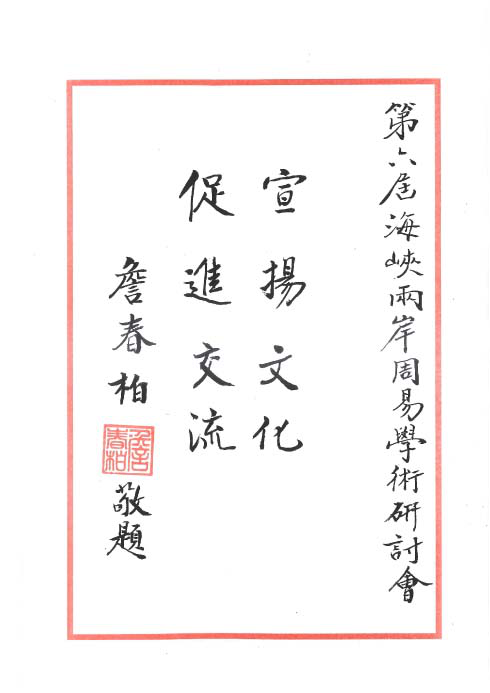 第六屆海峽兩岸周易學術研討會
宣揚文化
促進交流
詹春柏
詹春柏
敬題